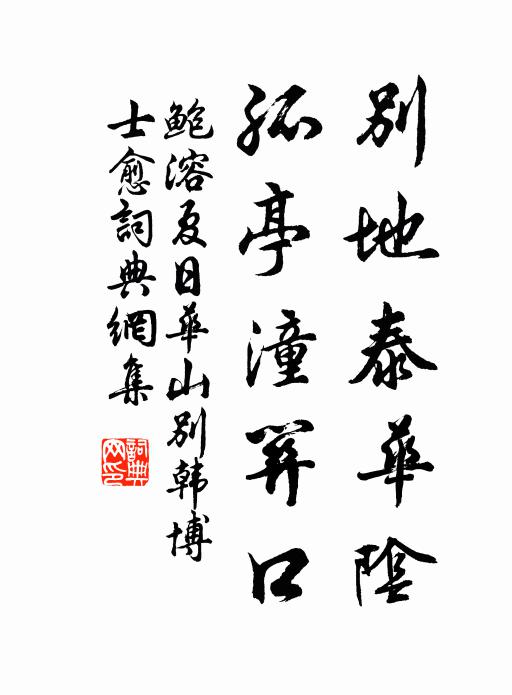 別地泰華陰
孤亭潼関口
鮑溶夏日華山別韩博
士愈詞典網集
詞典
网印